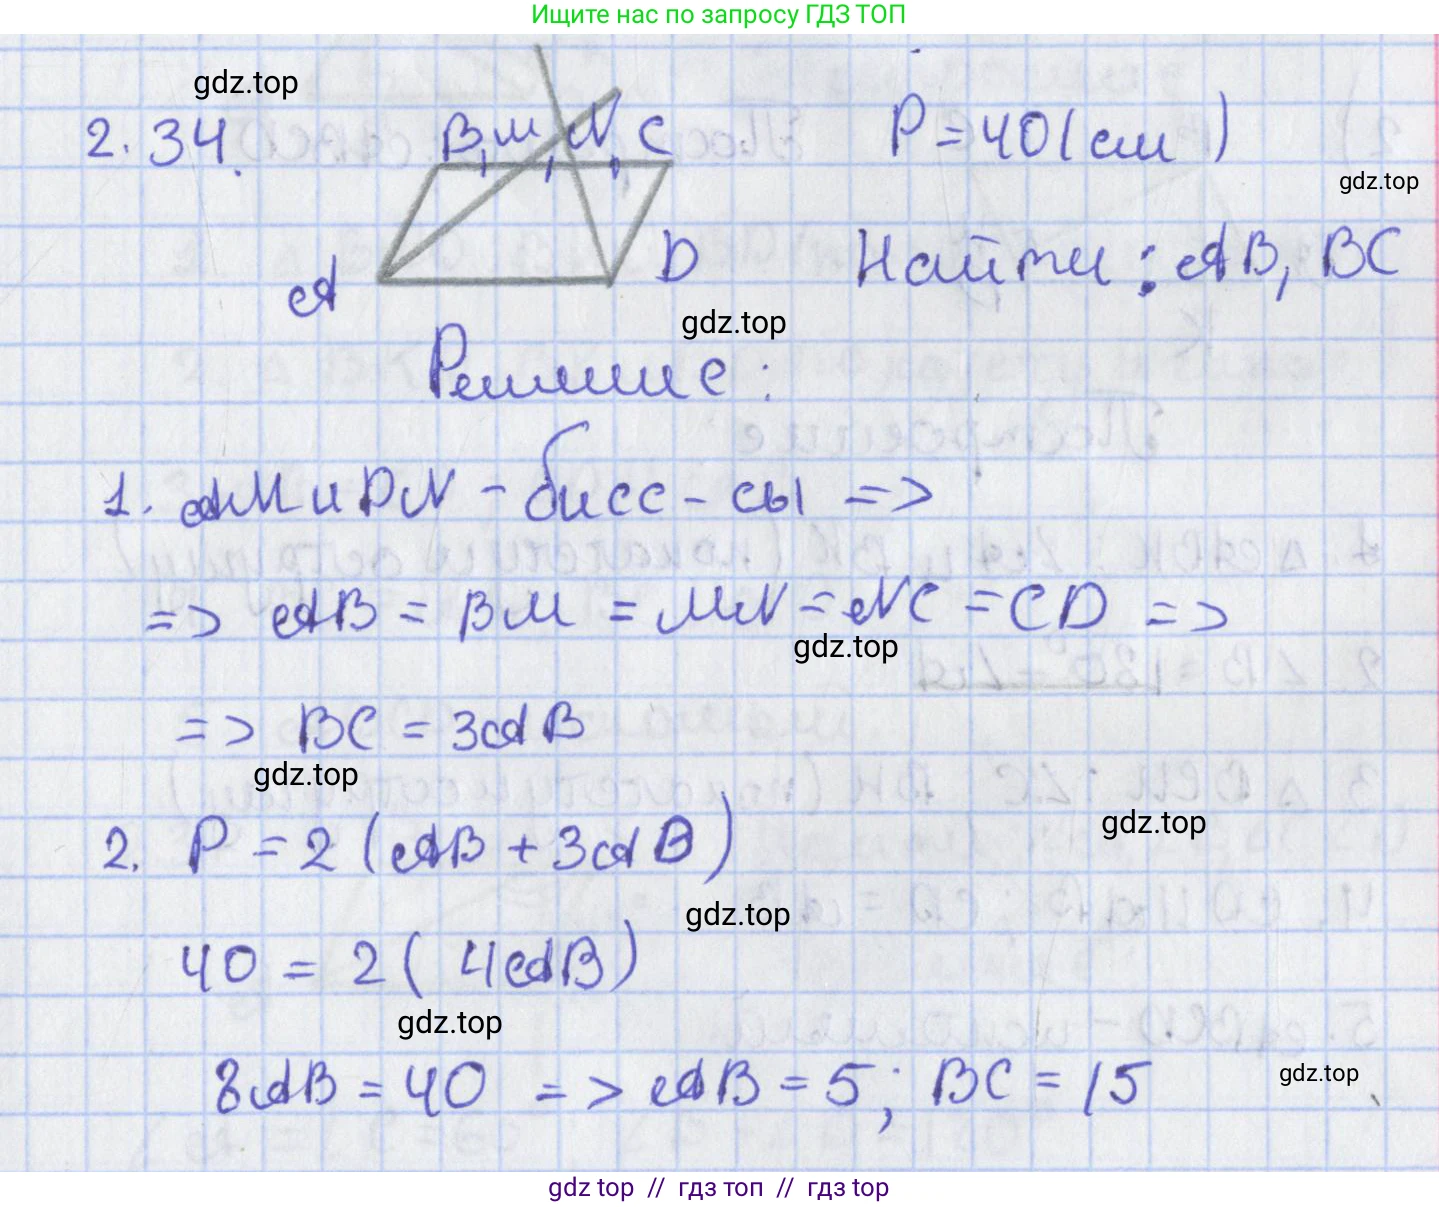 Ищите нас по запросу ГДЗ ТОП
gdz.top
2.34. B, M, N, C P = 40 (см)
gdz.top
A D Найти: AB, BC
gdz.top
Решение:
1. AM и DN - бисс-сы =>
=> AB = BM = MN = NC = CD =>
gdz.top
=> BC = 3AB
gdz.top
2. P = 2 (AB + 3AB)
gdz.top
gdz.top
40 = 2 ( 4AB)
gdz.top
8AB = 40 => AB = 5; BC = 15
gdz.top
gdz top // гдз топ // гдз top